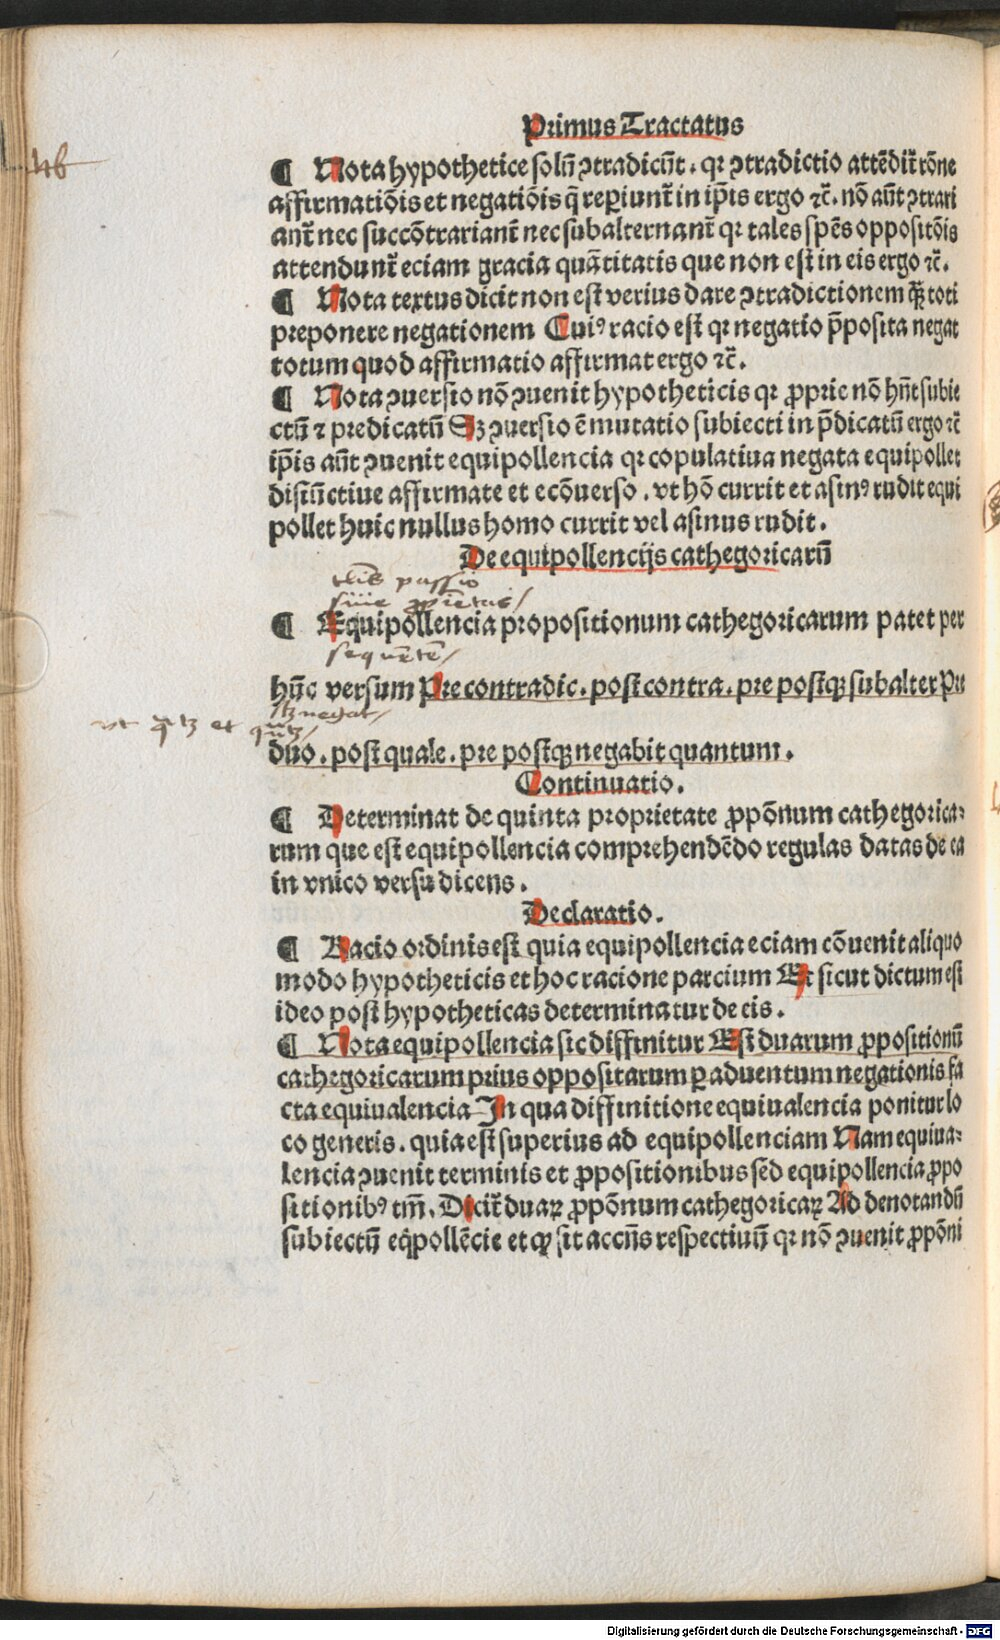 Primus Tractatus
¶ Nota hypothetice solū ↄtradicūt. qꝛ ↄtradictio attēdit᷑ rōne
affirmatiōis et negatiōis q̄ reꝑiunt᷑ in ip̄is ergo ⁊c̄. nō aūt ↄtrari
ant᷑ nec succōtrariant᷑ nec subalternant᷑ qꝛ tales sp̄es oppositōis
attendunt᷑ eciam gracia quātitatis que non est in eis ergo ⁊c̄.
¶ Nota textus dicit non est verius dare ↄtradictionem toti
preponere negationem Cuiꝰ racio est qꝛ negatio p̄posita negat
totum quod affirmatio affirmat ergo ⁊c̄.
¶ Nota ↄuersio nō ↄuenit hypotheticis qꝛ ꝓprie nō hn̄t subie
ctū ⁊ predicatū Sꝫ ↄuersio ē mutatio subiecti in p̄dicatū ergo ⁊c̄
ip̄is aūt ↄuenit equipollencia qꝛ copulatiua negata equipollet
disiūctiue affirmate et ecōuerso. vt hō currit et asinꝰ rudit equi
pollet huic nullus homo currit vel asinus rudit.
De equipollencijs cathegoricarū
¶ Equipollencia propositionum cathegoricarum patet per
hūc versum Pre contradic. post contra. pre postqꝫ subalter Pre
duo. post quale. pre postqꝫ negabit quantum.
Continuatio.
¶ Determinat de quinta proprietate ꝓpōnum cathegorica⸗
rum que est equipollencia comprehendēdo regulas datas de ea
in vnico versu dicens.
Declaratio.
¶ Racio ordinis est quia equipollencia eciam cōuenit aliquo
modo hypotheticis et hoc racione parcium Et sicut dictum est
ideo post hypotheticas determinatur de eis.
¶ Nota equipollencia sic diffinitur Est duarum ꝓpositionū
cathegoricarum prius oppositarum ꝑ aduentum negationis fa
cta equiualencia In qua diffinitione equiualencia ponitur lo
co generis. quia est superius ad equipollenciam Nam equiua⸗
lencia ↄuenit terminis et ꝓpositionibus sed equipollencia ꝓpo
sitionibꝰ tm̄. Dicit᷑ duaꝝ ꝓpōnum cathegoricaꝝ Ad denotandū
subiectū eq̇pollēcie et ꝙ sit accn̄s respectiuū qꝛ nō ↄuenit ꝓpōni
Digitalisierung gefördert durch die Deutsche Forschungsgemeinschaft - DFG